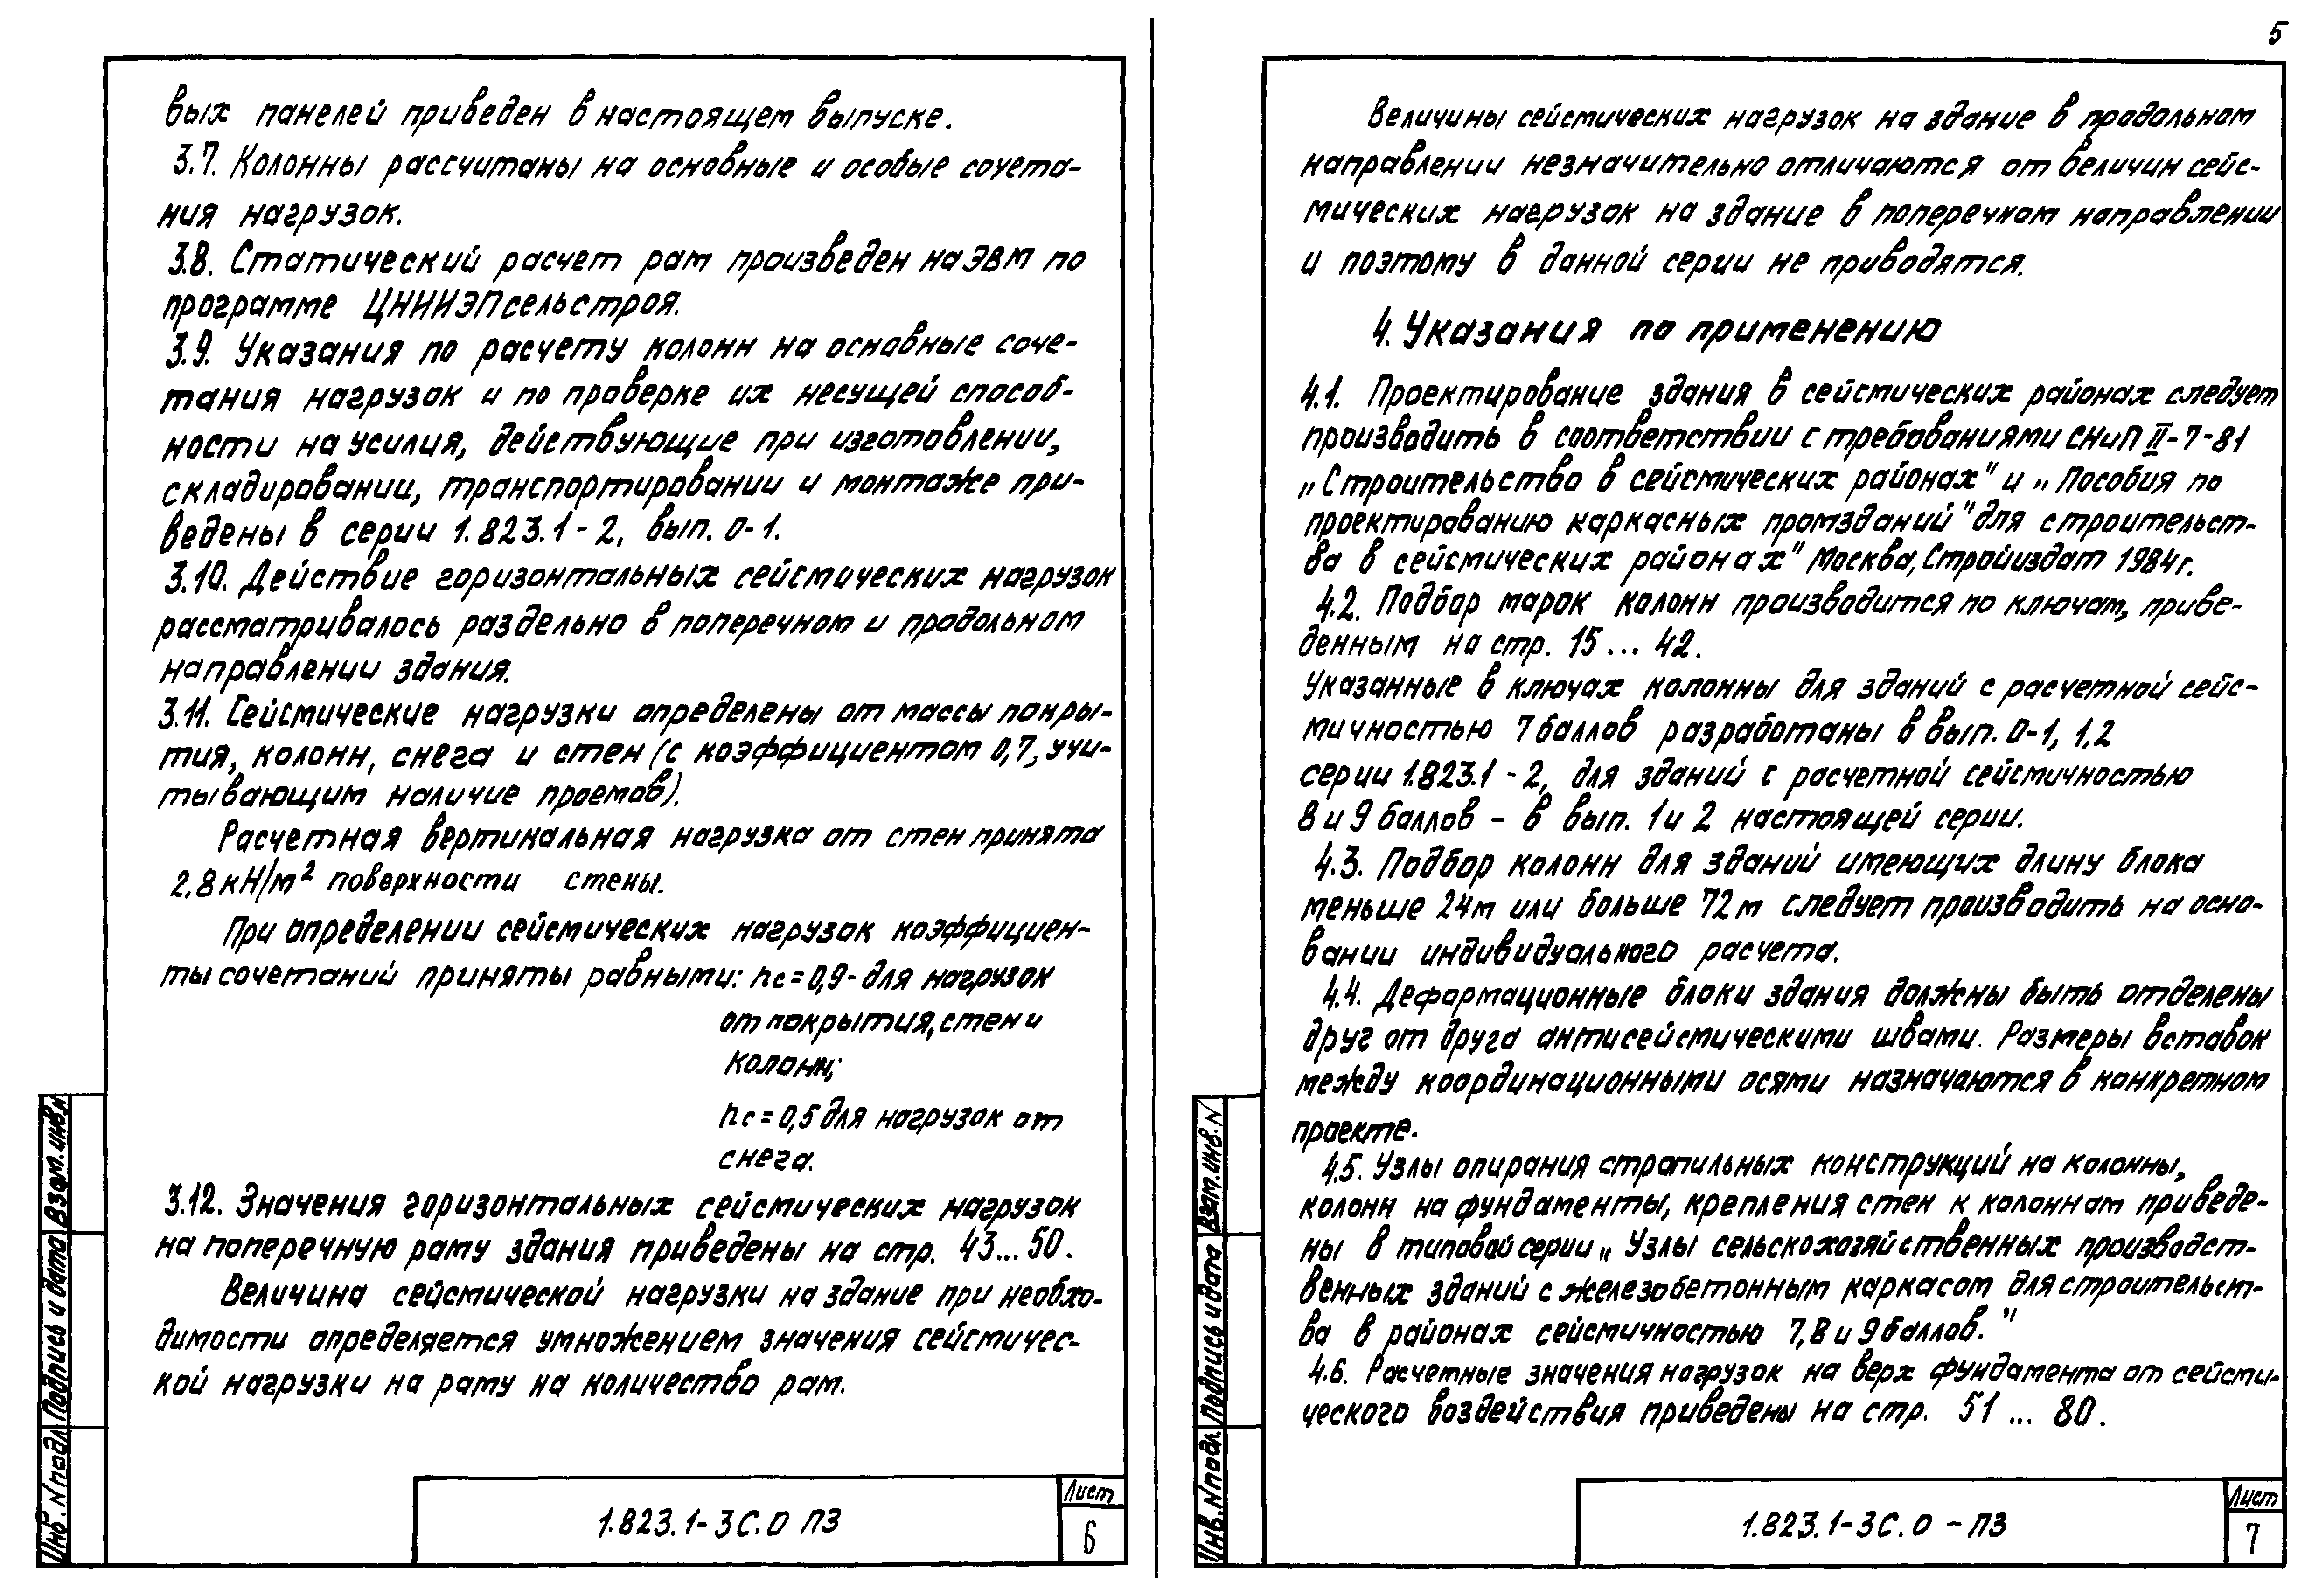 вых панелей приведен в настоящем выпуске.
3.7. Колонны рассчитаны на основные и особые сочета-
ния нагрузок.
3.8. Статический расчет рам произведен на ЭВМ по
программе ЦНИИЭПсельстроя.
3.9. Указания по расчету колонн на основные соче-
тания нагрузок и по проверке их несущей способ-
ности на усилия, действующие при изготовлении,
складировании, транспортировании и монтаже при-
ведены в серии 1.823.1-2, вып. 0-1.
3.10. Действие горизонтальных сейсмических нагрузок
рассматривалось раздельно в поперечном и продольном
направлении здания.
3.11. Сейсмические нагрузки определены от массы покры-
тия, колонн, снега и стен (с коэффициентом 0,7, учи-
тывающим наличие проемов).
Расчетная вертикальная нагрузка от стен принята
2,8 кН/м² поверхности стены.
При определении сейсмических нагрузок коэффициен-
ты сочетаний приняты равными: nc = 0,9 - для нагрузок
от покрытия, стен и
колонн;
nc = 0,5 для нагрузок от
снега.
3.12. Значения горизонтальных сейсмических нагрузок
на поперечную раму здания приведены на стр. 43...50.
Величина сейсмической нагрузки на здание при необхо-
димости определяется умножением значения сейсмичес-
кой нагрузки на раму на количество рам.
Инв. N подл. Подпись и дата Взам. инв. N
1.823.1-3С.0 ПЗ
Лист
6
5
Величины сейсмических нагрузок на здание в продольном
направлении незначительно отличаются от величин сейс-
мических нагрузок на здание в поперечном направлении
и поэтому в данной серии не приводятся.
4. Указания по применению
4.1. Проектирование здания в сейсмических районах следует
производить в соответствии с требованиями СНиП II-7-81
„Строительство в сейсмических районах" и „Пособия по
проектированию каркасных промзданий" для строительст-
ва в сейсмических районах" Москва, Стройиздат 1984г.
4.2. Подбор марок колонн производится по ключам, приве-
денным на стр. 15 ... 42.
Указанные в ключах колонны для зданий с расчетной сейс-
мичностью 7 баллов разработаны в вып. 0-1, 1,2
серии 1.823.1-2, для зданий с расчетной сейсмичностью
8 и 9 баллов - в вып. 1 и 2 настоящей серии.
4.3. Подбор колонн для зданий имеющих длину блока
меньше 24м или больше 72м следует производить на осно-
вании индивидуального расчета.
4.4. Деформационные блоки здания должны быть отделены
друг от друга антисейсмическими швами. Размеры вставок
между координационными осями назначаются в конкретном
проекте.
4.5. Узлы опирания стропильных конструкций на колонны,
колонн на фундаменты, крепления стен к колоннам приведе-
ны в типовой серии „Узлы сельскохозяйственных производст-
венных зданий с железобетонным каркасом для строительст-
ва в районах сейсмичностью 7,8 и 9 баллов."
4.6. Расчетные значения нагрузок на верх фундамента от сейсми-
ческого воздействия приведены на стр. 51 ... 80.
Инв. N подл. Подпись и дата Взам. инв. N
1.823.1-3С.0 - ПЗ
Лист
7